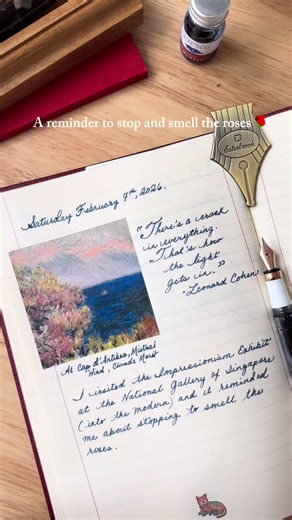 A reminder to stop and smell the roses
Esterbrook
Saturday February 7th, 2026.
"There's a crack
in everything.
That's how
the light
gets in."
-Leonard Cohen
At Cap d'Antibes, Mistral
Wind, Claude Monet
I visited the Impressionism Exhibit
at the National Gallery of Singapore
(into the modern) and it reminded
me about stopping to smell the
roses.